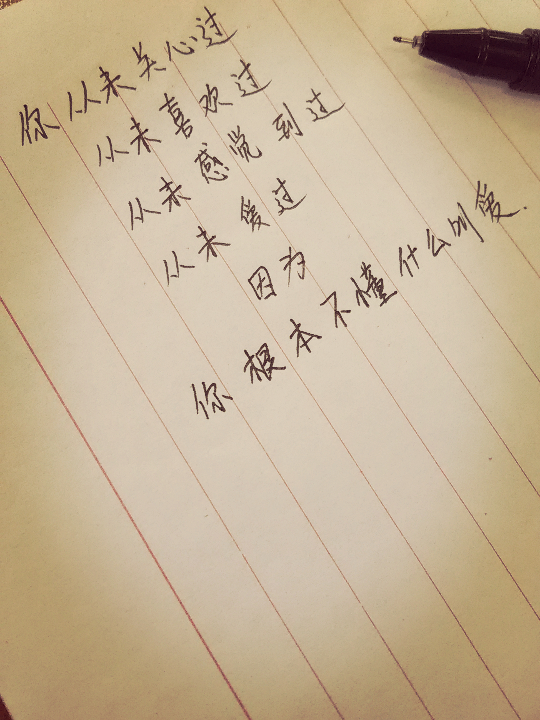 你从未关心过
从未喜欢过
从未感觉到过
从未爱过
因为
你根本不懂什么叫爱.